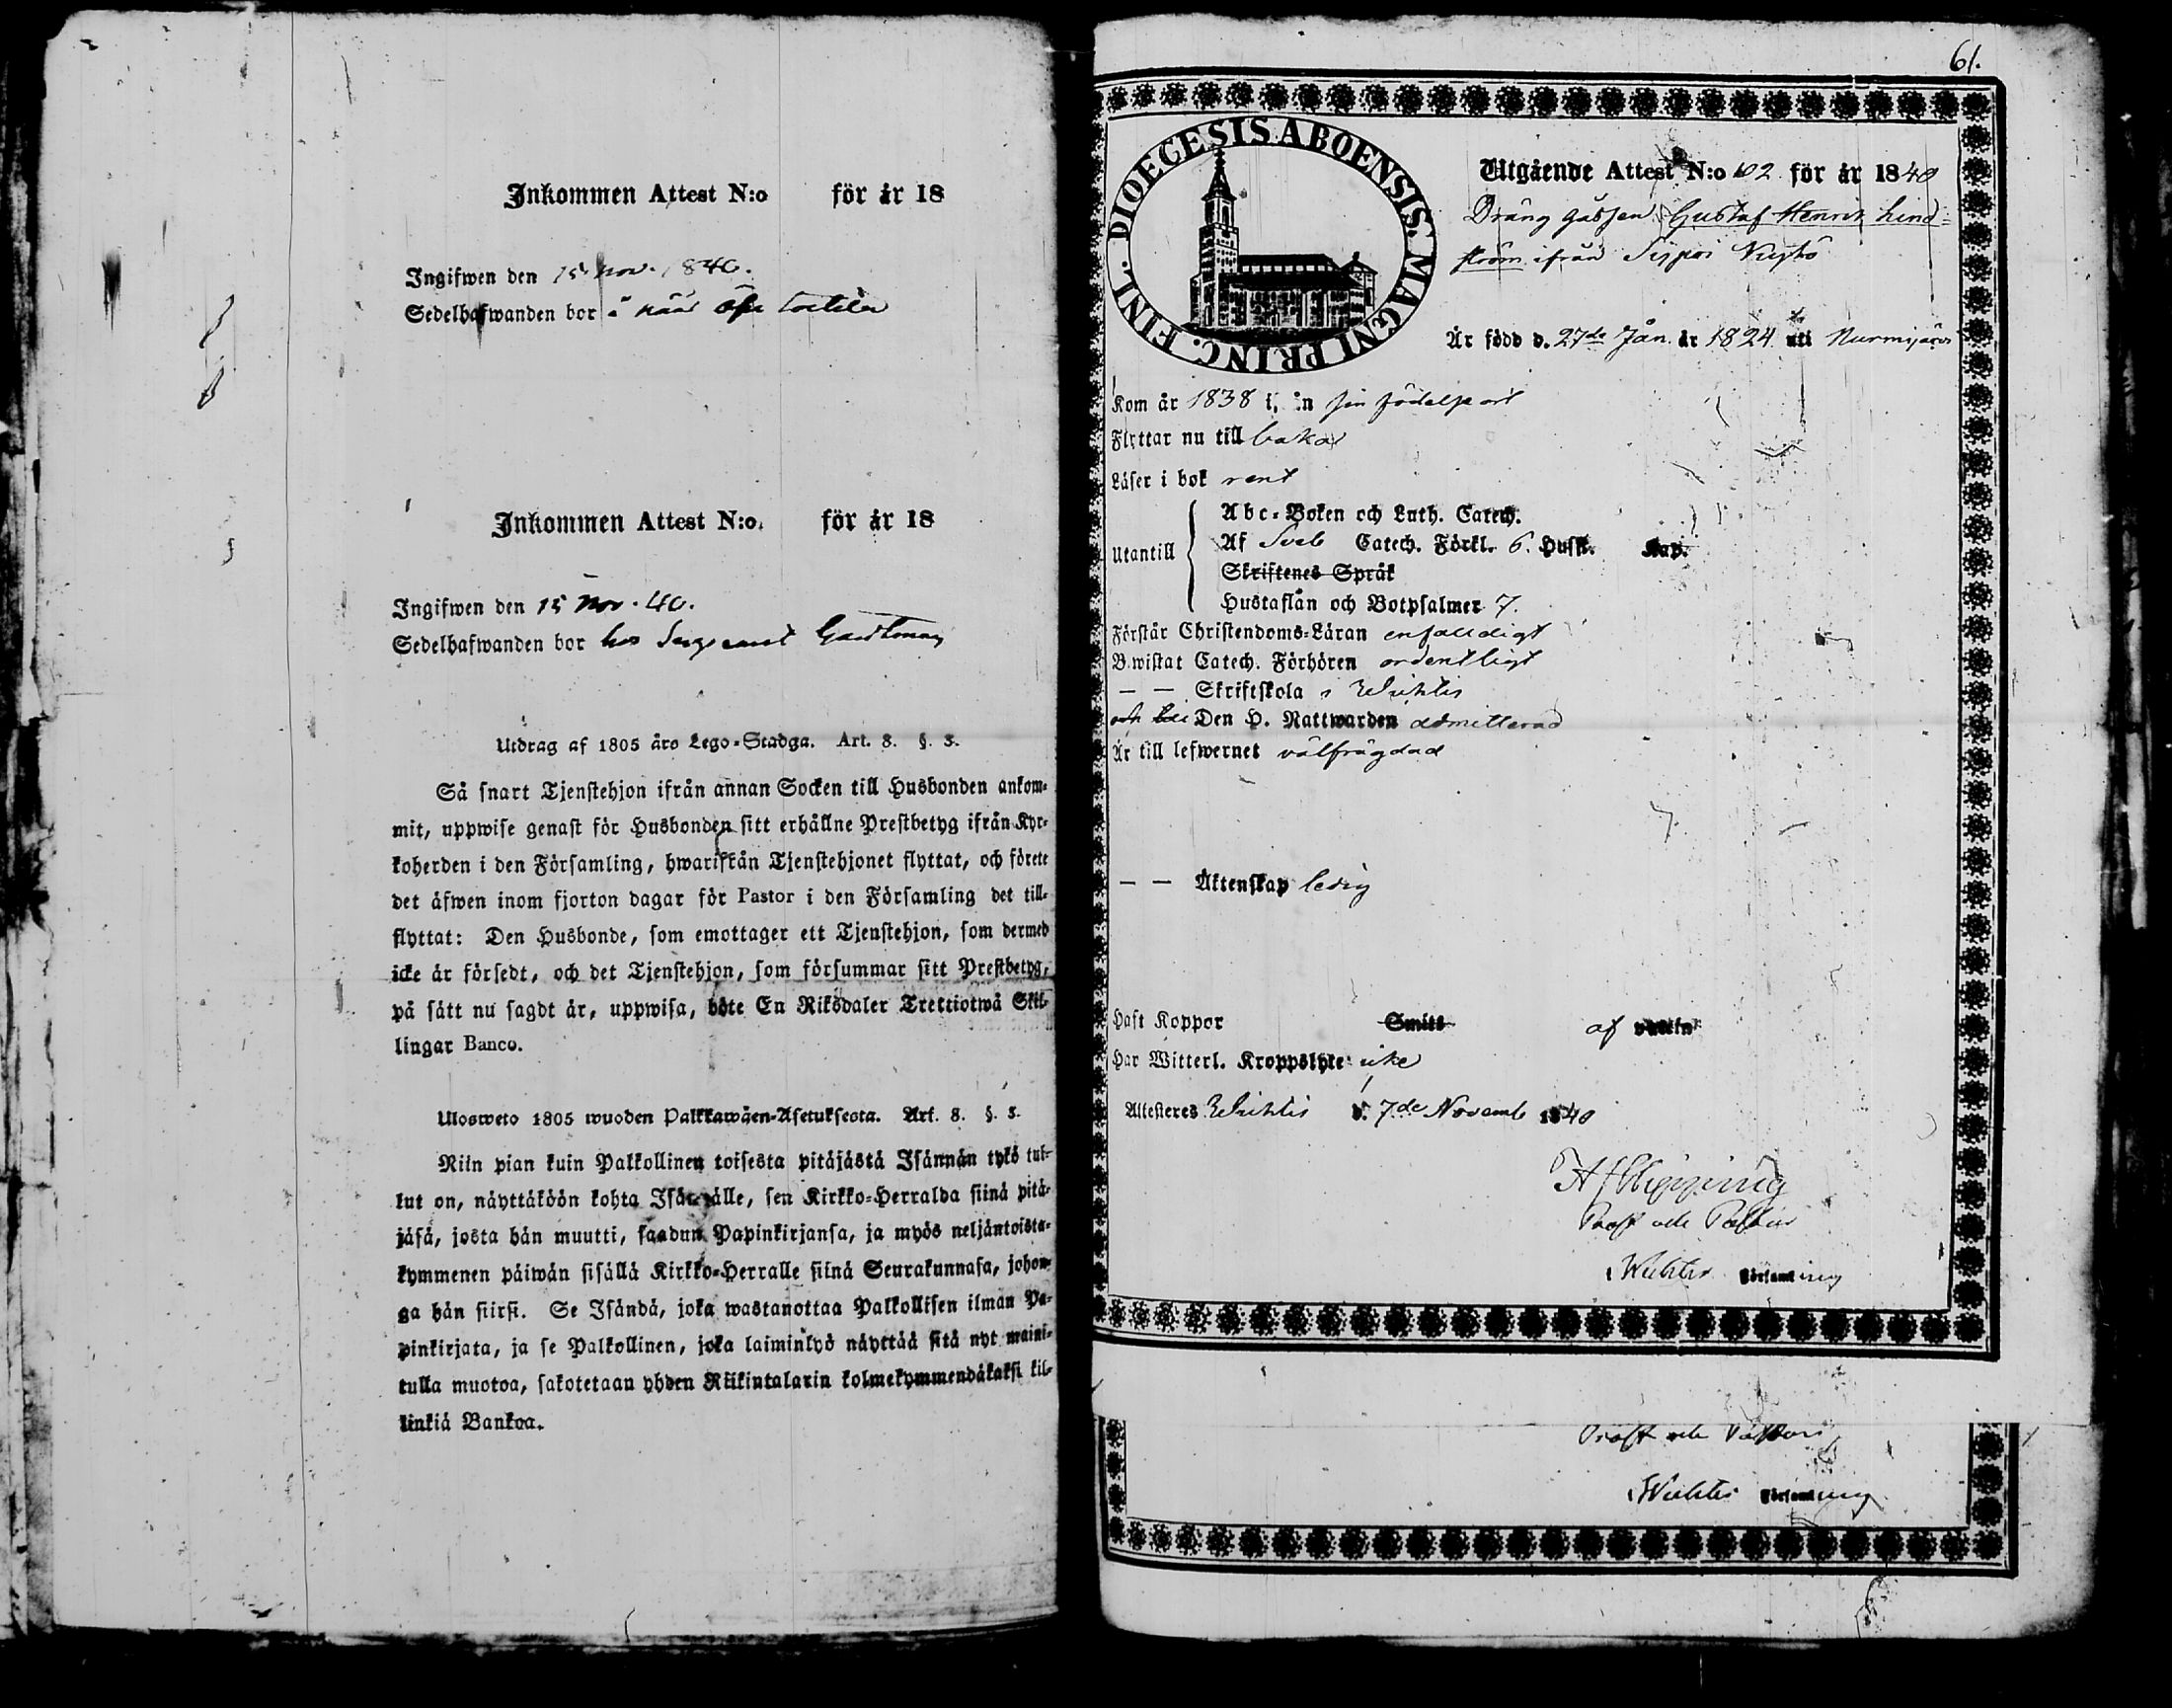 Inkommen Attest N:o för år 18
Ingifwen den 15 Nov. 1840.
Sedelhafwanden bor å
Inkommen Attest N:o. för år 18
Ingifwen den 15 Nov. 40.
Sedelhafwanden bor hos Sergeant
Utdrag af 1805 års Lego-Stadga. Art. 8. §. 3.
Så snart Tjenstehjon ifrån annan Socken till Husbonden ankom-
mit, uppwise genast för Husbonden sitt erhållne Prestbetyg ifrån Kyr-
koherden i den Församling, hwarifrån Tjenstehjonet flyttat, och förete
det äfwen inom fjorton dagar för Pastor i den Församling det till-
flyttat: Den Husbonde, som emottager ett Tjenstehjon, som dermed
icke är försedt, och det Tjenstehjon, som försummar sitt Prestbetyg,
på sätt nu sagdt är, uppwisa, böte En Riksdaler Trettiotwå Skil-
lingar Banco.
Ulosweto 1805 wuoden Palkkawäen-Asetuksesta. Art. 8. §. 3.
Niin pian kuin Palkollinen toisesta pitäjästä Isännän tykö tul-
lut on, näyttäköön kohta Isännälle, sen Kirkko-Herralda siinä pitä-
jäsä, josta hän muutti, saadun Papinkirjansa, ja myös neljäntoista-
kymmenen päiwän sisällä Kirkko-Herralle siinä Seurakunnasa, johon-
ga hän siirsi. Se Isändä, joka wastanottaa Palkollisen ilman Pa-
pinkirjata, ja se Palkollinen, joka laiminlyö näyttää sitä nyt maini-
tulla muotoa, sakotetaan yhden Riikintalarin kolmekymmendäkaksi kil-
linkiä Bankoa.
61.
DIOECESIS ABOENSIS. MAGNI PRINC. FINL.
Utgående Attest N:o 102 för år 1840
Dräng gåssen Gustaf Henrik Lind-
ström ifrån Nuyhö
Är född d. 27de Jan. år 1824 uti Nurmijärvi
Kom år 1838 ifrån sin födelseort
Flyttar nu till baka
Läser i bok rent
Utantill
Abc-Boken och Luth. Catech.
Af Sveb Catech. Förkl. 6. Husk. Kap.
Skriftenes Språk
Hustaflan och Botpsalmer 7.
Förstår Christendoms-Läran enfaldigt
Bewistat Catech. Förhören ordentligt
— — Skriftskola i Wichtis
och Den H. Nattwarden admitterad
Är till lefwernet välfrägdad
— — Äktenskap ledig
Haft Koppor Smitt af vaccin
Har Witterl. Kroppslyte icke
Attesteres Wichtis d. 7de Novemb 1840
A F Hipping
Prost och Pastor
i Wichtis Församling
Prost och Pastor
i Wichtis Församling